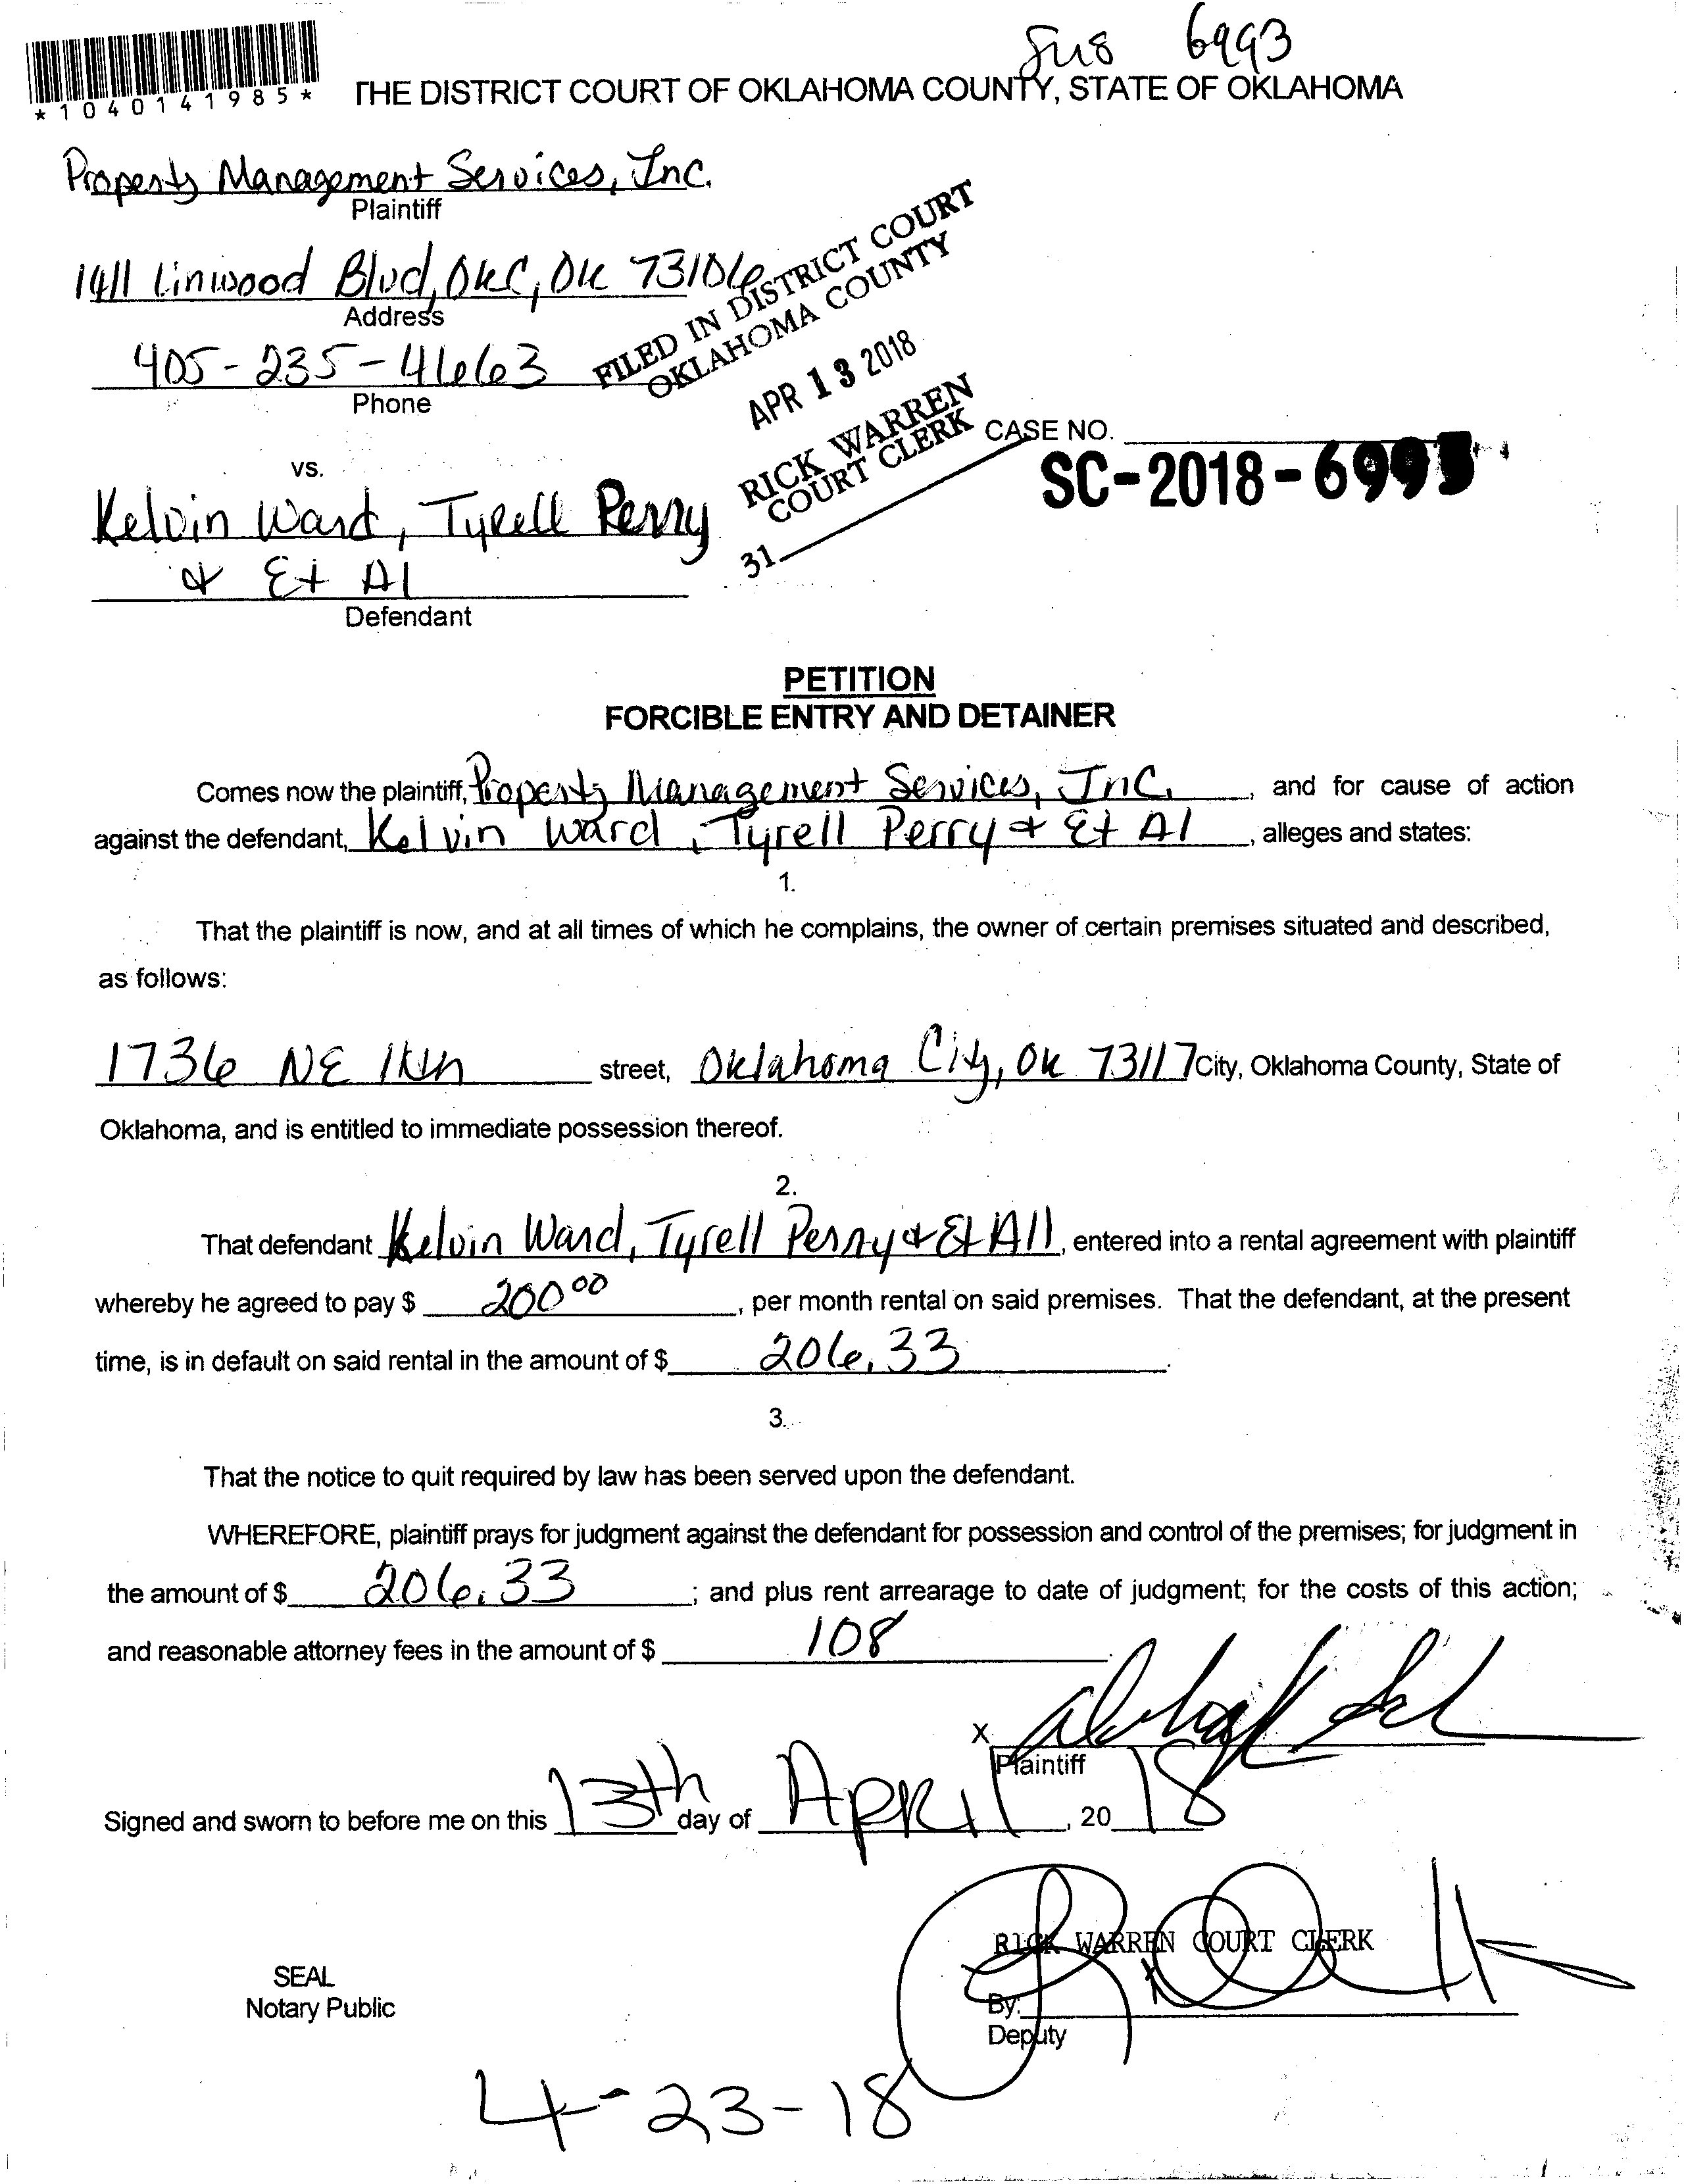 6993
*1040141985*
THE DISTRICT COURT OF OKLAHOMA COUNTY, STATE OF OKLAHOMA
Property Management Services, Inc.
Plaintiff
1411 Linwood Blvd, OKC, OK 73106
Address
405-235-4663
Phone
FILED IN DISTRICT COURT
OKLAHOMA COUNTY
APR 13 2018
RICK WARREN
COURT CLERK
31
CASE NO.
SC-2018-699
vs.
Kelvin Ward, Tyrell Perry
& Et Al
Defendant
PETITION
FORCIBLE ENTRY AND DETAINER
Comes now the plaintiff, Property Management Services, Inc. , and for cause of action
against the defendant, Kelvin Ward, Tyrell Perry & Et Al , alleges and states:
1.
That the plaintiff is now, and at all times of which he complains, the owner of certain premises situated and described,
as follows:
1736 NE street, Oklahoma City, OK 73117 City, Oklahoma County, State of
Oklahoma, and is entitled to immediate possession thereof.
2.
That defendant Kelvin Ward, Tyrell Perry & Et All, entered into a rental agreement with plaintiff
whereby he agreed to pay $ 200 00 , per month rental on said premises. That the defendant, at the present
time, is in default on said rental in the amount of $ 206.33 .
3.
That the notice to quit required by law has been served upon the defendant.
WHEREFORE, plaintiff prays for judgment against the defendant for possession and control of the premises; for judgment in
the amount of $ 206.33 ; and plus rent arrearage to date of judgment; for the costs of this action;
and reasonable attorney fees in the amount of $ 108 .
X
Plaintiff
Signed and sworn to before me on this 13th day of April , 20 18
RICK WARREN COURT CLERK
SEAL
Notary Public
By:
Deputy
4-23-18